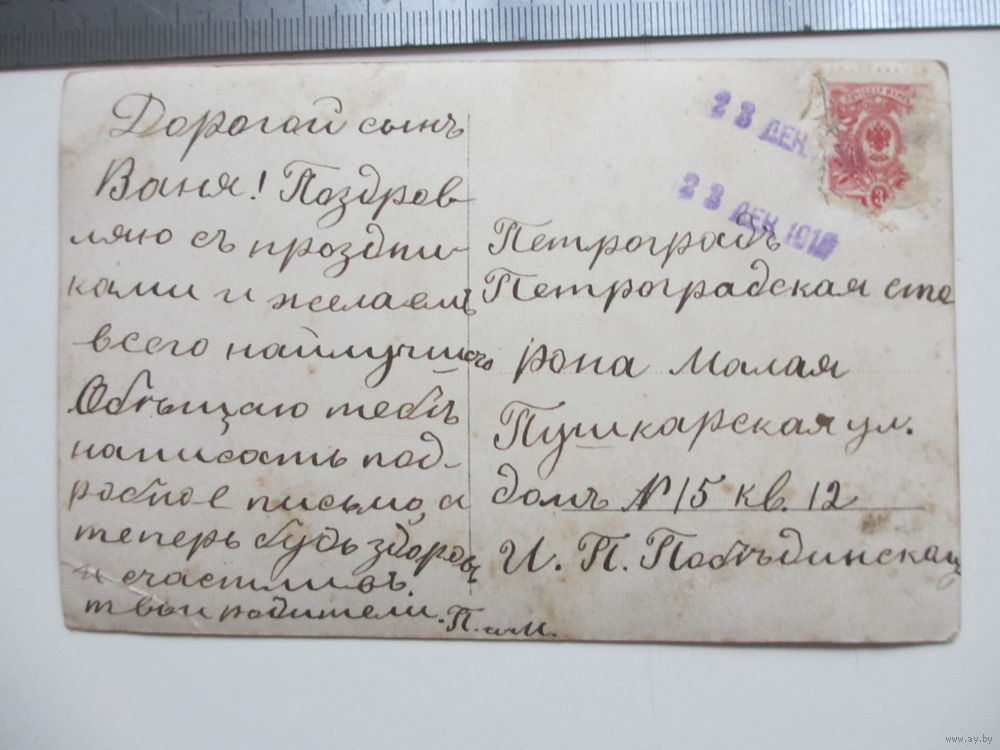 Дорогой сынъ
Ваня! Поздров
ляю съ проздни-
ками и желаемъ
всего наилучшого
Обѣщаю тебѣ
написать под-
робное письмо, а
теперь будь здоровъ
и счастливъ.
твои родители. П. и М.
23 ДЕК.
23 ДЕК. 191
3
Петроградъ
Петроградская сто
рона Малая
Пушкарская ул.
домъ № 15 кв. 12
И. П. Побѣдинскац
www.ay.by